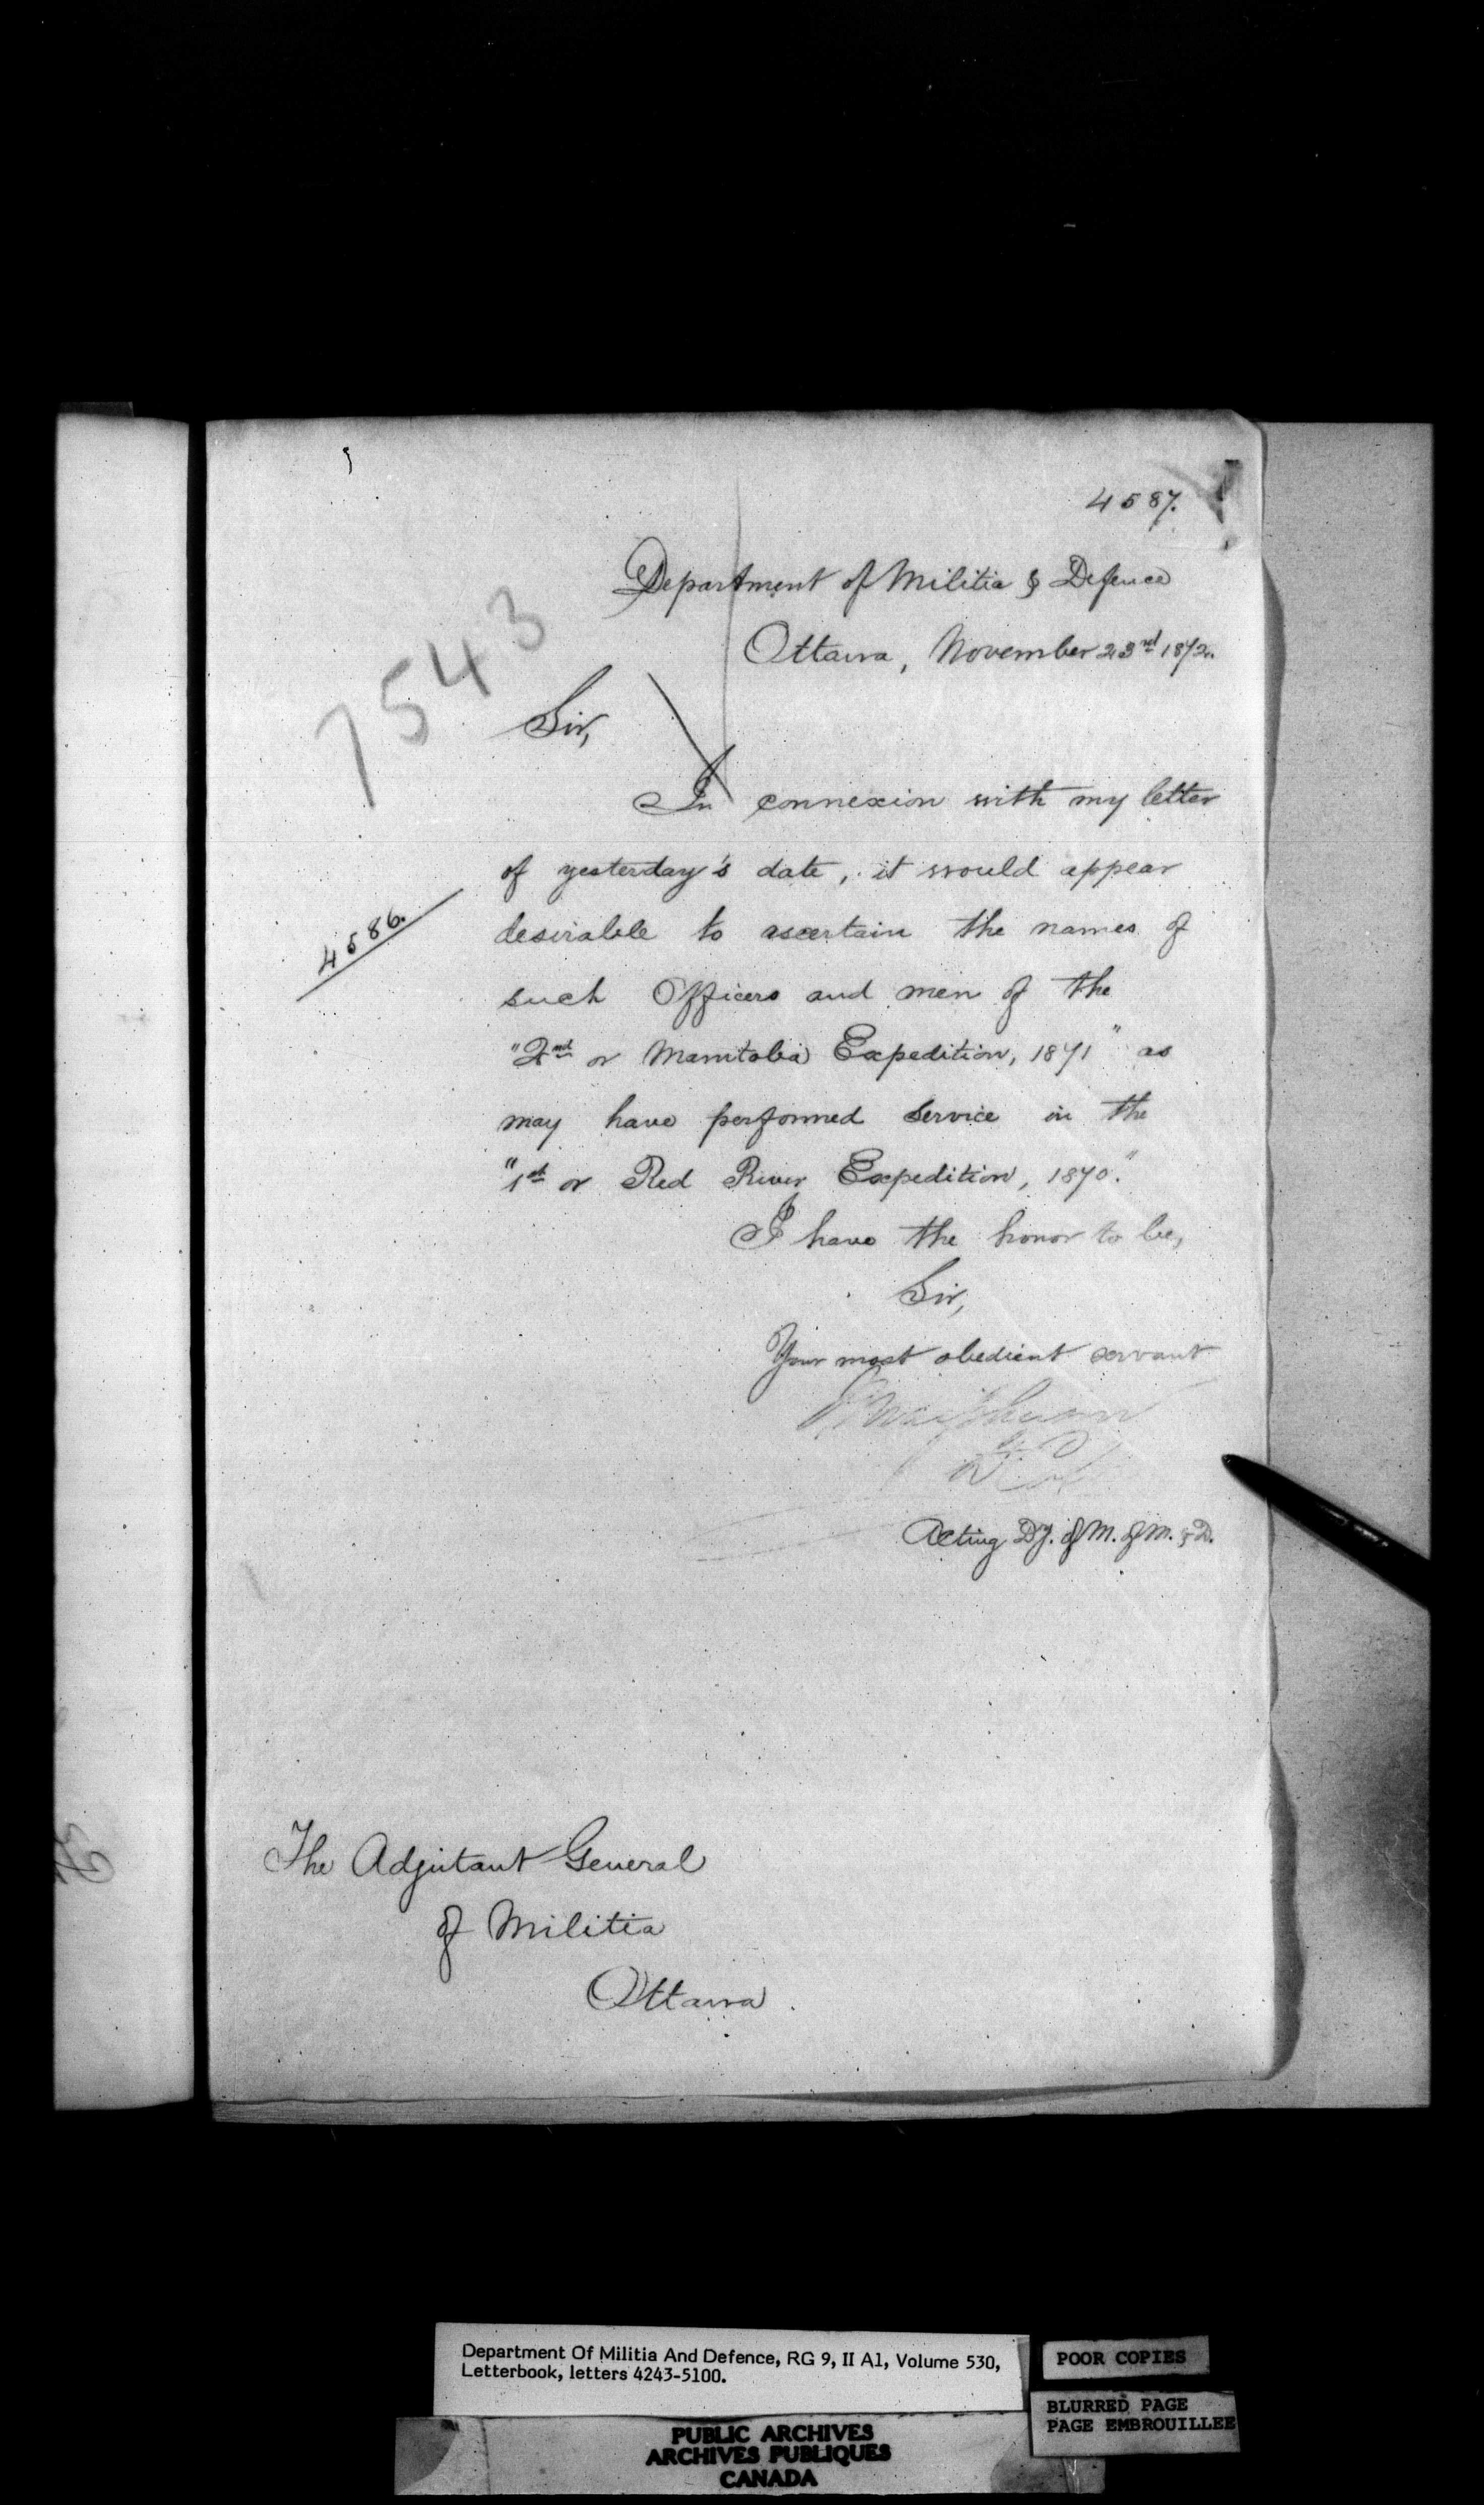 4587.
Department of Militia & Defence
Ottawa, November 23rd 1872.
7543
Sir,
In connexion with my letter
of yesterday's date, it would appear
4586.
desirable to ascertain the names of
such Officers and men of the
"2nd or Manitoba Expedition, 1871" as
may have performed service in the
"1st or Red River Expedition, 1870."
I have the honor to be,
Sir,
Your most obedient servant
Acting Dy. of M. of M. & D.
The Adjutant General
of Militia
Ottawa.
Department Of Militia And Defence, RG 9, II A1, Volume 530,
Letterbook, letters 4243-5100.
POOR COPIES
BLURRED PAGE
PAGE EMBROUILLEE
PUBLIC ARCHIVES
ARCHIVES PUBLIQUES
CANADA